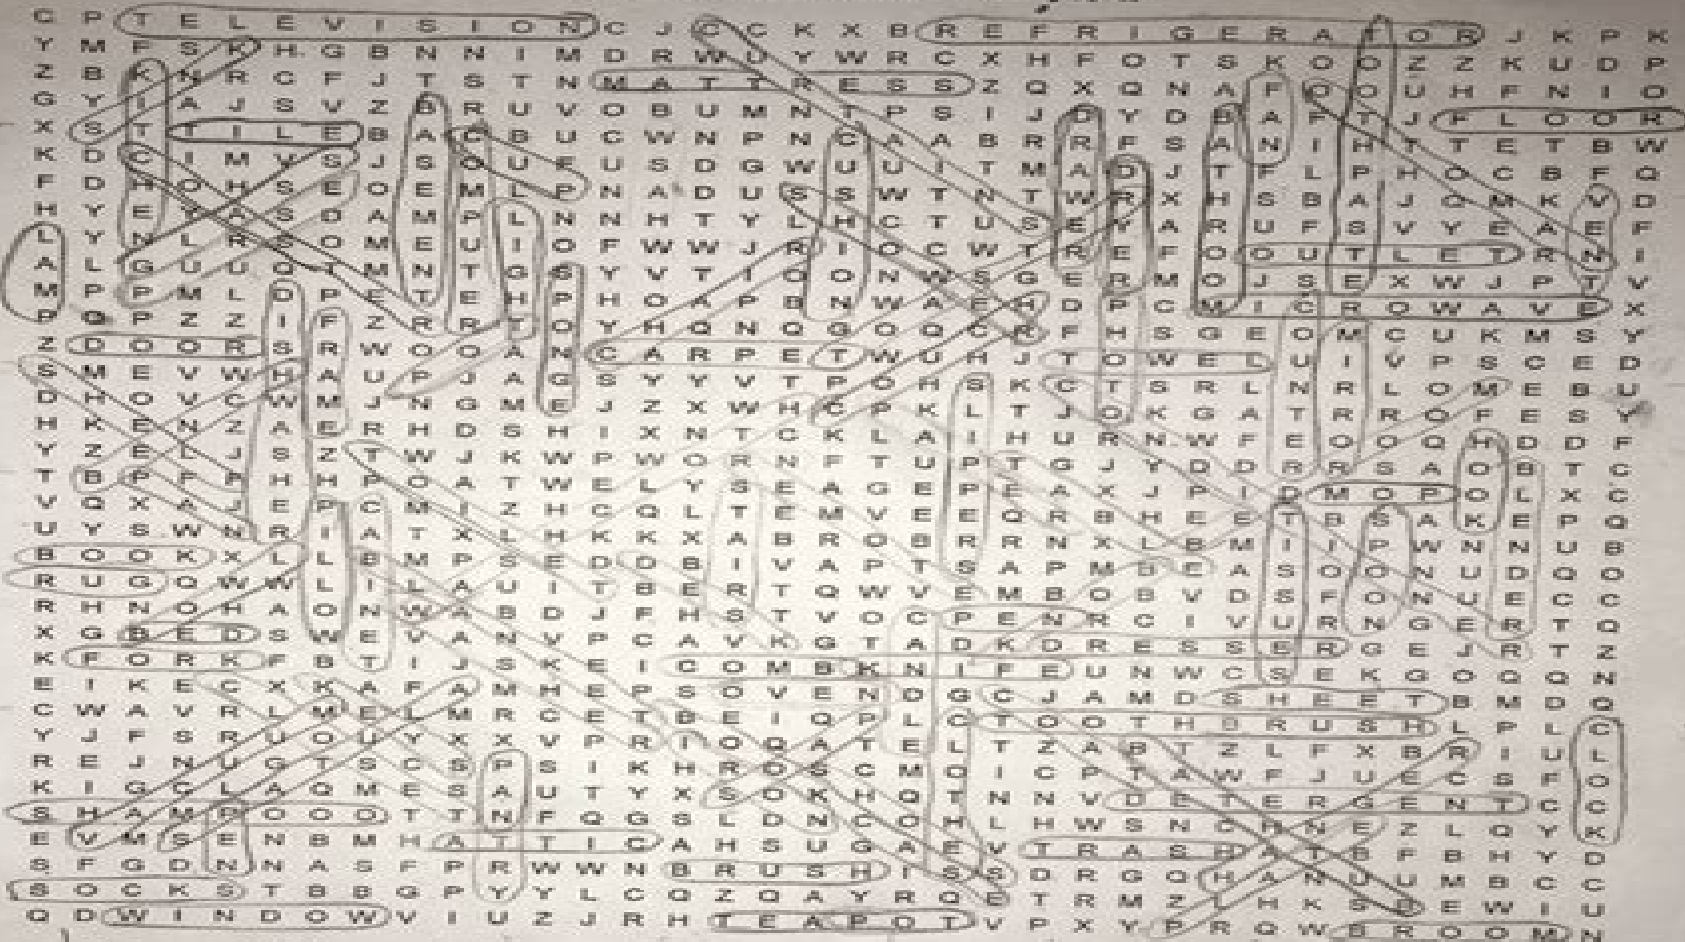 C P T E L E V I S I O N C J C C K X B R E F R I G E R A T O R J K P K
Y M F S K H G B N N I M D R W U Y W R C X H F O T S K O O Z Z K U D P
Z B K N R C F J T S T N M A T T R E S S Z Q X Q N A F R O U H F N I O
G Y I A J S V Z B R U V O B U M N T P S I J D Y D B A F T J F L O O R
X S T T I L E B A C B U C W N P N C A A B R R F S A N I H T T E T B W
K D C I M V S J S O U F U S D G W U U I T M A D J T F L P H O C B F Q
F D H O H S E O E M L P N A D U S S W T N T W R X H S B A J O M K V D
H Y E Y A S D A M P L N N H T Y L H C T U S E Y A R U F S V Y E A E F
L Y N L R S O M E U I O F W W J R I O C W T R E F O O U T L E T R N I
A L G U U Q T M N T G S Y V T I O O N W S G E R M O J S E X W J P T V
M P P M L D P E T E H P H O A P B N W A E H D P C M I C R O W A V E X
P Q P Z Z I F Z R R T O Y H Q N Q G O Q C R F H S G E O M C U K M S Y
Z D O O R S R W O O A N C A R P E T W U H J T O W E L U I V P S C E D
S M E V W H A U P J A G S Y Y V T P O H S K C T S R L N R L O M E B U
D H O V C W M J N G M E J Z X W H C P K L T J O K G A T R R O F E S Y
H K E N Z A E R H D S H I X N T C K L A I H U R N W F E O O Q H D D F
Y Z E L J S Z T W J K W P W O R N F T U P T G J Y D D R R S A O B T C
T B P F P H H P O A T W E L Y S E A G E P E A X J P I D M O P O L X C
V Q X A J E P C M I Z H C Q L T E M V E E Q R B H E E T B S A K E P Q
U Y S W N R I A T X L H K K X A B R O B R R N X L B M I I P W N N U B
B O O K X L L B M P S E D D B I V A P T S A P M B E A S O O N U D Q O
R U G Q W W L I L A U I T B E R T Q W V E M B O B V D S F O N U E C C
R H N O H A O N W A B D J F H S T V O C P E N R C I V U R N G E R T Q
X G B E D S W E V A N V P C A V K G T A D K D R E S S E R G E J R T Z
K F O R K F B T I J S K E I C O M B K N I F E U N W C S E K G O Q Q N
E I K E C X K A F A M H E P S O V E N D G C J A M D S H E E T B M D Q
C W A V R L M E L M R C E T B E I Q P L C T O O T H B R U S H L P L C
Y J F S R U O U Y X X V P R I O Q A T E L T Z A B T Z L F X B R I U L
R E J N U G T S C S P S I K H R O S C M O I C P T A W F J U E C S F O
K I G C L A Q M E S A U T Y X S O K H Q T N N V D E T E R G E N T C C
S H A M P O O O T T N F Q G S L D N C O H L H W S N C H N E Z L Q Y K
E V M S E N B M H A T T I C A H S U G A E V T R A S H A T B F B H Y D
S F G D N N A S F P R W W N B R U S H I S S D R G Q H A N U U M B C C
S O C K S T B B G P Y Y L C Q Z Q A Y R Q E T R M Z L H K S D E W I U
Q D W I N D O W V I U Z J R H T E A P O T V P X Y P R Q W B R O O M N